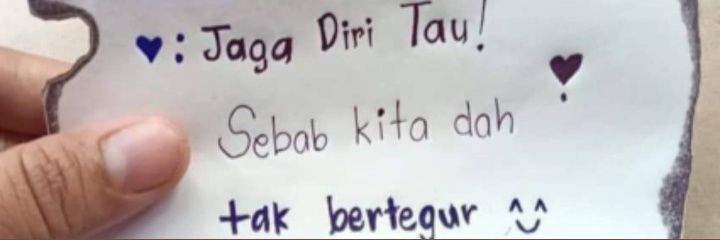 ♥: Jaga Diri Tau!
Sebab kita dah
tak bertegur ^^